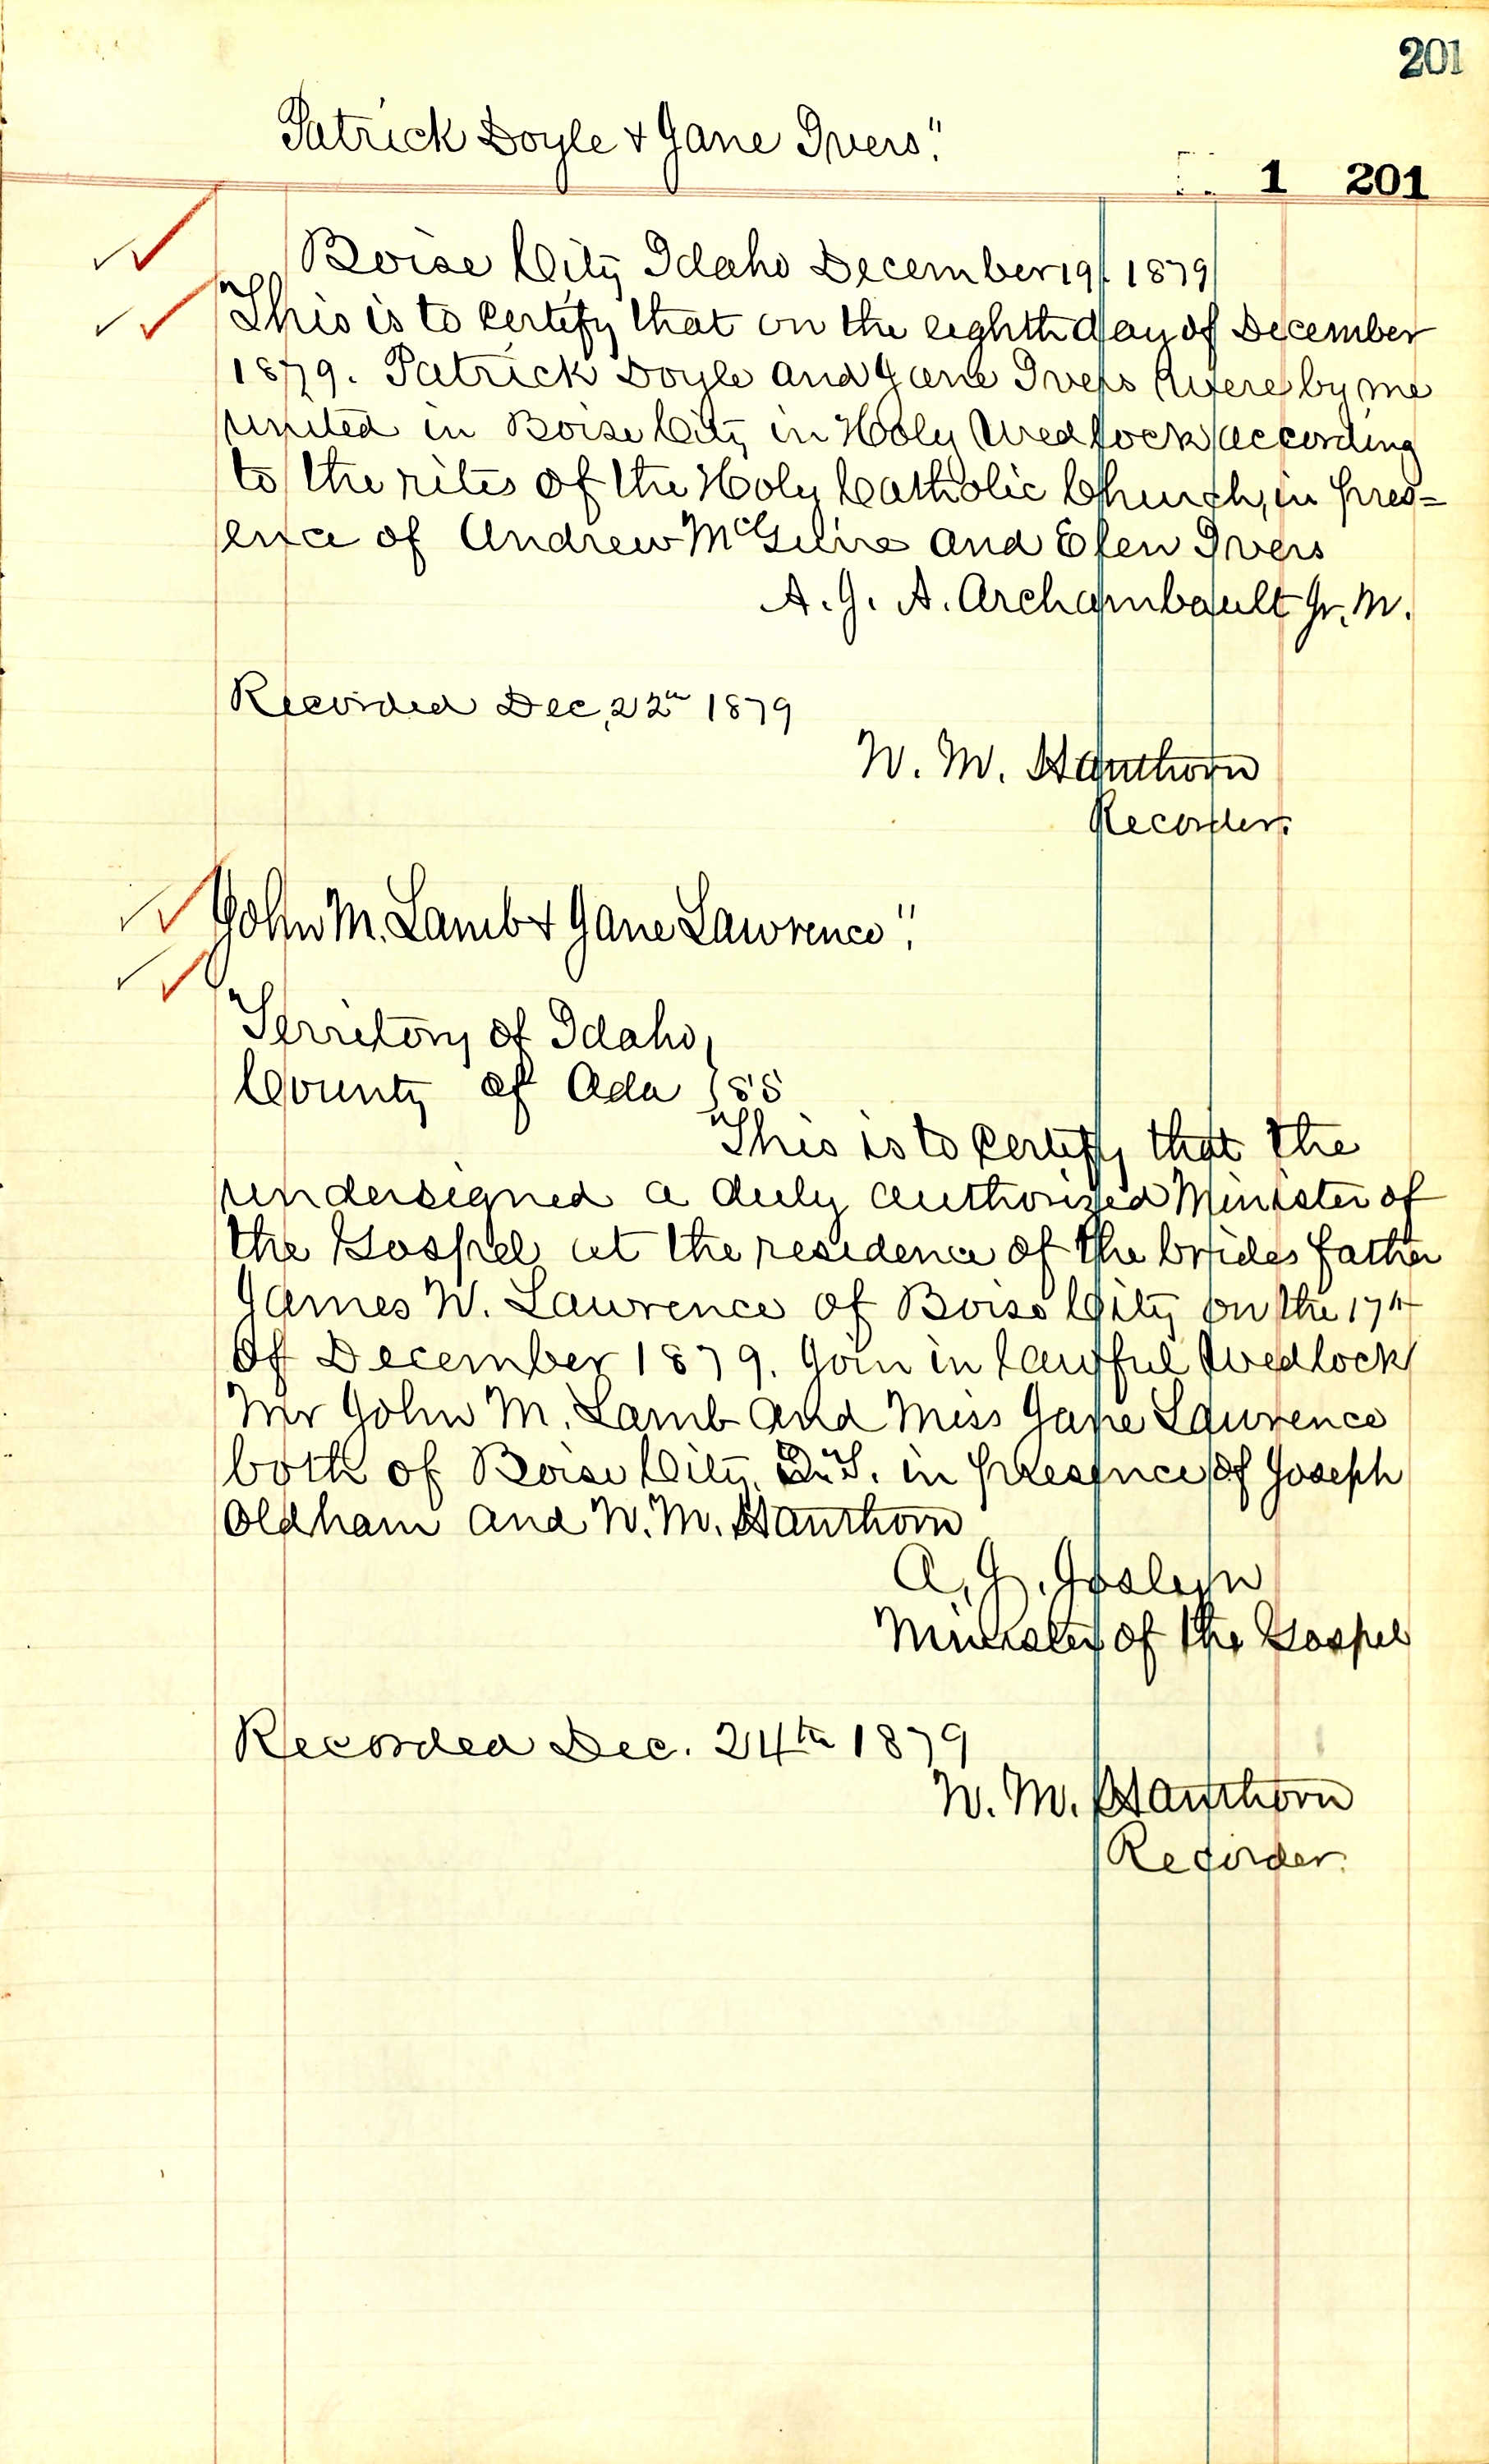 201
Patrick Doyle & Jane Ivers".
1 201
Boise City Idaho December 19/. 1879
"This is to certify that on the eighth day of December
1879. Patrick Doyle and Jane Ivers were by me
united in Boise City in Holy Wedlock according
to the rites of the Holy Catholic Church, in pres=
ence of Andrew McGuire and Elen Ivers
A. J. A. Archambault Jr. M.
Recorded Dec, 22n 1879
W. M. Hawthorn
Recorder.
John M. Lamb & Jane Lawrence".
"Territory of Idaho,
County of Ada } SS
"This is to certify that the
undersigned a duly authorized Minister of
the Gospel, at the residence of the brides father
James W. Lawrence of Boise City on the 17th
of December 1879. Join in lawful Wedlock
Mr John M. Lamb and Miss Jane Lawrence
both of Boise City, I.T. in presence of Joseph
Oldham and W. M. Hawthorn
A. J. Joslyn
Minister of the Gospel
Recorded Dec. 24th 1879
W. M. Hawthorn
Recorder.